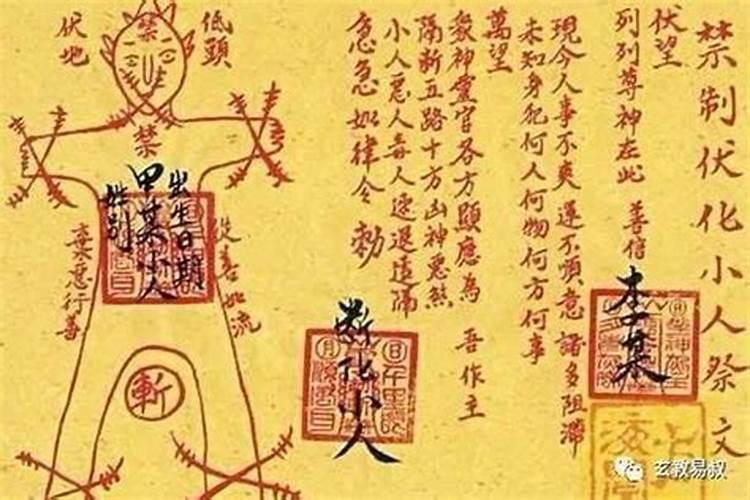 禁制伏化小人祭文
伏望
列列尊神在此 善信
李某
現今人事不爽運不順意諸多阻滯
未知身犯何人何物何方何事
萬望
眾神靈官各方顯應為 吾作主
隔斷五路十方凶神惡煞
小人惡人毒人速退遠隔
急急如律令勅
斷化小人
低頭
伏地
禁
禁
出生日期
甲某小人
姓別
從善如流
棄惡行善
斬
玄教易叔